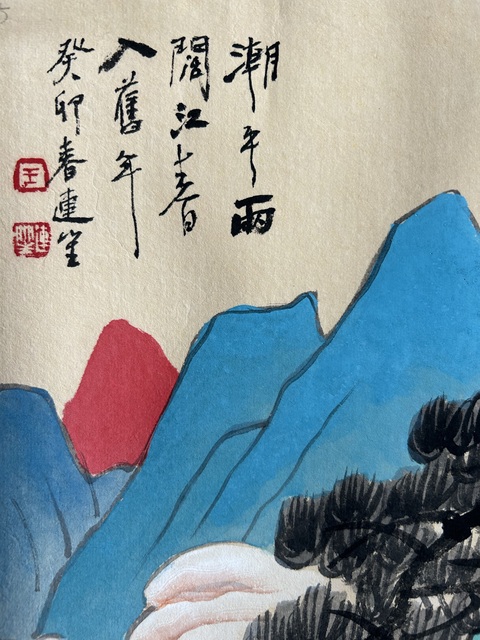 潮平兩
闊江春
入舊年
癸卯春連笙
王
連笙